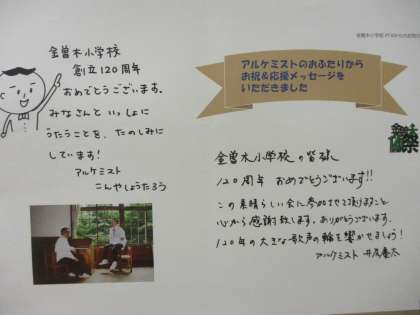 金曽木小学校
創立120周年
おめでとうございます。
みなさんと いっしょに
うたうことを、たのしみに
しています!
アルケミスト
こんやしょうたろう
金曽木小学校
アルケミストのおふたりから
お祝&応援メッセージを
いただきました
金曽木小学校の皆様
120周年 おめでとうございます!!
この素晴らしい会に参加させて頂けること
心から感謝致します。ありがとうございます。
120年の大きな歌声の輪を響かせましょう!
アルケミスト 井尻慶太